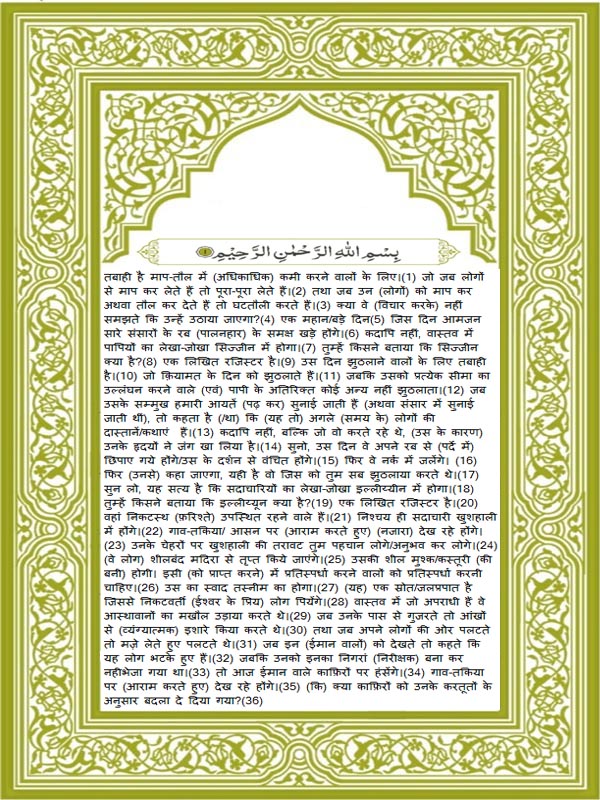 بِسْمِ اللهِ الرَّحْمٰنِ الرَّحِيْمِ ۝١
तबाही है माप-तौल में (अधिकाधिक) कमी करने वालों के लिए।(1) जो जब लोगों
से माप कर लेते हैं तो पूरा-पूरा लेते हैं।(2) तथा जब उन (लोगों) को माप कर
अथवा तौल कर देते हैं तो घटतौली करते हैं।(3) क्या वे (विचार करके) नहीं
समझते कि उन्हें उठाया जाएगा?(4) एक महान/बड़े दिन(5) जिस दिन आमजन
सारे संसारों के रब (पालनहार) के समक्ष खड़े होंगे।(6) कदापि नहीं, वास्तव में
पापियों का लेखा-जोखा सिज्जीन में होगा।(7) तुम्हें किसने बताया कि सिज्जीन
क्या है?(8) एक लिखित रजिस्टर है।(9) उस दिन झुठलाने वालों के लिए तबाही
है।(10) जो क़ियामत के दिन को झुठलाते हैं।(11) जबकि उसको प्रत्येक सीमा का
उल्लंघन करने वाले (एवं) पापी के अतिरिक्त कोई अन्य नहीं झुठलाता।(12) जब
उसके सम्मुख हमारी आयतें (पढ़ कर) सुनाई जाती हैं (अथवा संसार में सुनाई
जाती थीं), तो कहता है (/था) कि (यह तो) अगले (समय के) लोगों की
दास्तानें/कथाएं हैं।(13) कदापि नहीं, बल्कि जो वो करते रहे थे, (उस के कारण)
उनके हृदयों ने जंग खा लिया है।(14) सुनो, उस दिन वो अपने रब से (पर्दे में)
छिपाए गये होंगे/उस के दर्शन से वंचित होंगे।(15) फिर वे नर्क में जलेंगे। (16)
फिर (उनसे) कहा जाएगा, यही है वो जिस को तुम सब झुठलाया करते थे।(17)
सुन लो, यह सत्य है कि सदाचारियों का लेखा-जोखा इल्लीय्यीन में होगा।(18)
तुम्हें किसने बताया कि इल्लीय्यून क्या है?(19) एक लिखित रजिस्टर है।(20)
वहां निकटस्थ (फ़रिश्ते) उपस्थित रहने वाले हैं।(21) निश्चय ही सदाचारी खुशहाली
में होंगे।(22) गाव-तकिया/ आसन पर (आराम करते हुए) (नज़ारा) देख रहे होंगे।
(23) उनके चेहरों पर खुशहाली की तरावट तुम पहचान लोगे/अनुभव कर लोगे।(24)
(वे लोग) शीलबंद मदिरा से तृप्त किये जाएंगे।(25) उसकी शील मुश्क/कस्तूरी (की
बनी) होगी। इसी (को प्राप्त करने) में प्रतिस्पर्धा करने वालों को प्रतिस्पर्धा करनी
चाहिए।(26) उस का स्वाद तस्नीम का होगा।(27) (यह) एक स्रोत/जलप्रपात है
जिससे निकटवर्ती (ईश्वर के प्रिय) लोग पियेंगे।(28) वास्तव में जो अपराधी हैं वे
आस्थावानों का मखौल उड़ाया करते थे।(29) जब उनके पास से गुज़रते तो आंखों
से (व्यंग्यात्मक) इशारे किया करते थे।(30) तथा जब अपने लोगों की ओर पलटते
तो मज़े लेते हुए पलटते थे।(31) जब इन (ईमान वालों) को देखते तो कहते कि
यह लोग भटके हुए हैं।(32) जबकि उनको इनका निगरां (निरीक्षक) बना कर
नहीभेजा गया था।(33) तो आज ईमान वाले काफ़िरों पर हंसेंगे।(34) गाव-तकिया
पर (आराम करते हुए) देख रहे होंगे।(35) (कि) क्या काफ़िरों को उनके करतूतों के
अनुसार बदला दे दिया गया?(36)